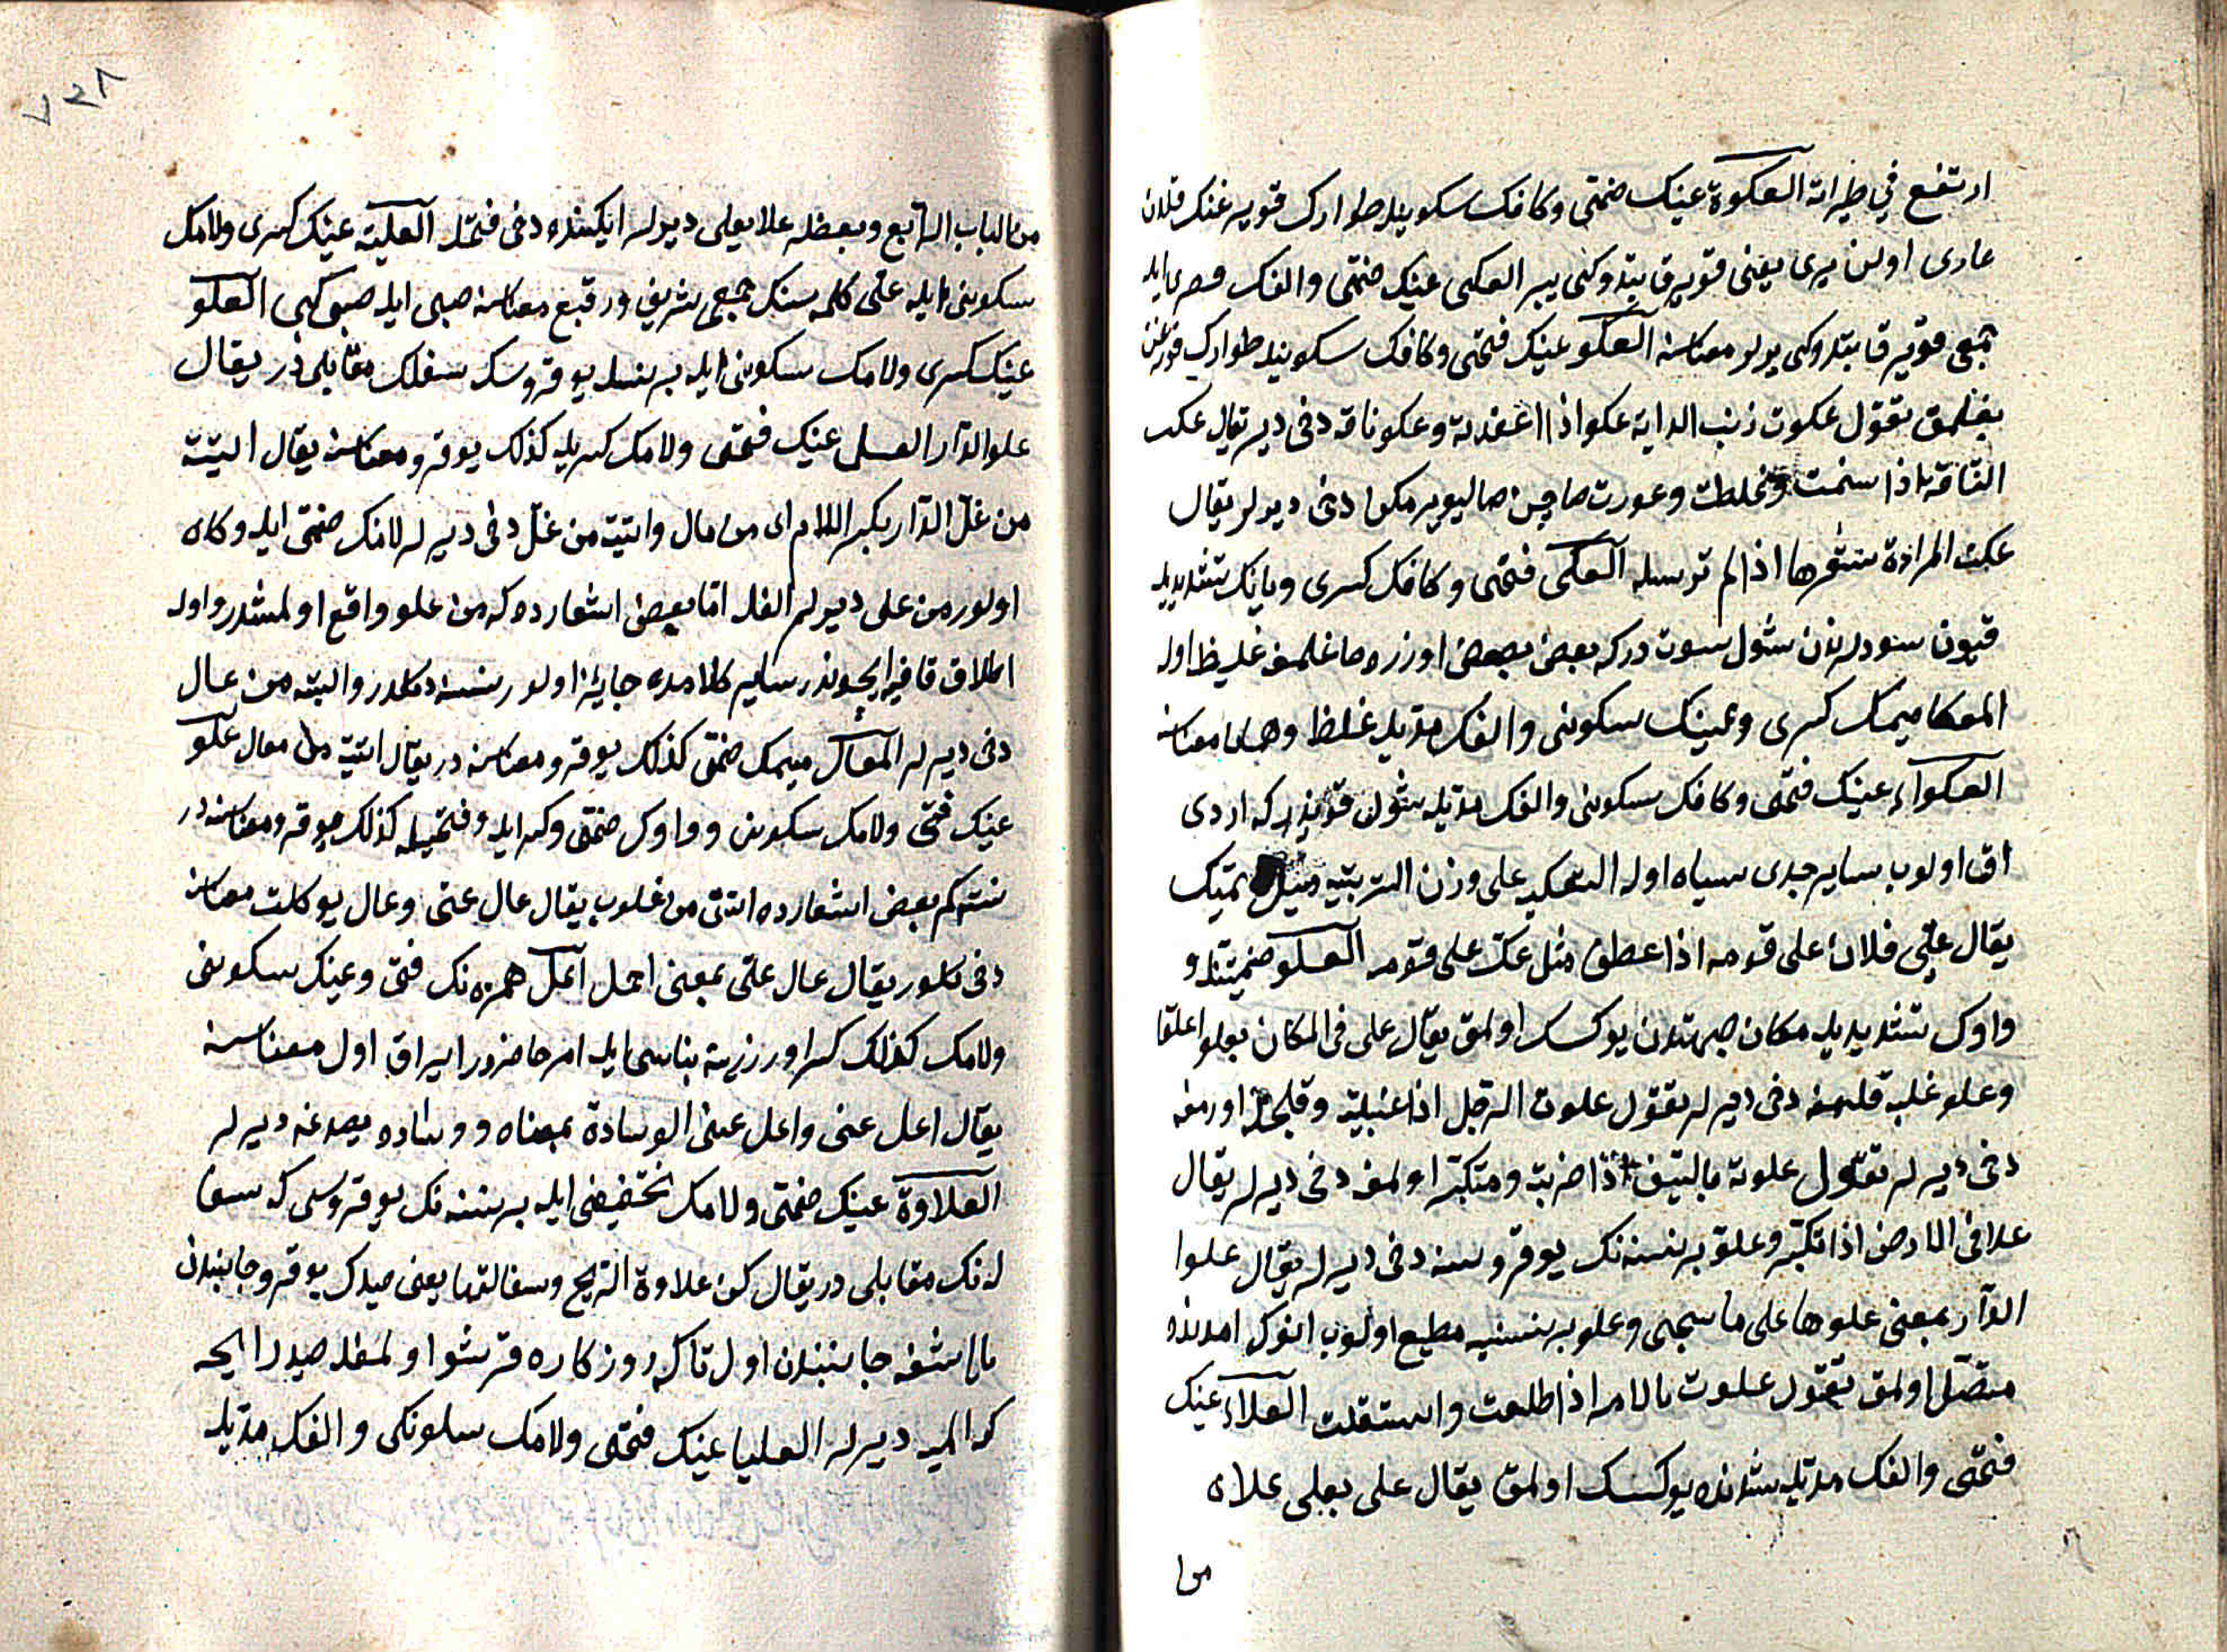 ارتفع في طيرانه العكوة عينك ضمتى وكافك سكونيله طوارك قويرغنك قلدن
عارى اولان يرى يعنى قويرق بتدوكى ير العكى عينك ضمتى والفك قصرى ايله
جمعى قويرق بتدوكى يرلر معناسنه العكو عينك فتحى وكافك سكونيله طوارك قويرغن
بغلمق تقول عكوت ذنب الدابة عكوا اذا عقدته وعكو ناقه دخى دير يقال عكت
الناقة اذا سمنت وغلظت وعورت صاچن صاليويرمكه دخى ديرلر يقال
عكت المراة شعرها اذا لم ترسله العكى فتحى وكافك كسرى ويانك تشديديله
قيون سودلرندن شول سوت دركه بعض بعض اوزره صاغلمغله غليظ اوله
المعكا ميمك كسرى وعينك سكونى والفك مديله غلظ معناسنه
العكواء عينك فتحى وكافك سكونى والفك مديله شول قويندركه اردى
اق اولوب ساير جسدى سياه اوله التعكيه على وزن التربيه ميل ايتمك
يقال عكى فلان على قومه اذا عطف مثل عك على قومه العلو ضميتله و
واوك تشديديله مكان جهتندن يوكسك اولمق يقال على فى المكان يعلو علوا
وعلو غلبه قلمغه دخى ديرلر تقول علوت الرجل اذا غلبته وقلجله اورمغه
دخى ديرلر تقول علوته بالسيف اذا ضربته ومتكبر اولمغه دخى ديرلر يقال
علا فى الارض اذا تكبر وعلو بر نسنه نك يوقروسنه دخى ديرلر يقال علوا
الدار بمعنى علوها على ما سيجى وعلو بر نسنيه مطيع اولوب انوك امرنده
متصل اولمق تقول علوت بالامر اذا اطلعت واستقللت العلاء عينك
فتحى والفك مديله شرفده يوكسك اولمق يقال على يعلى علاء
من
٧٢٨
من الباب الرابع وبعضلر علا يعلى ديرلر ايكيسنده دخى فتحله العلية عينك كسرى ولامك
سكونى ايله على كلمه سنك جمعى شريف ورفيع معناسنه صبى ايله صبيه كبى العلو
عينك كسرى ولامك سكونى ايله بر نسنه يوقروسنك سفلك مقابلى در يقال
علو الدار العلى عينك فتحى ولامك كسريله كذلك يوقرو معناسنه يقال اتيته
من عل الدار بكسر اللام اى من عال واتيته من عل دخى ديرلر لامك ضمتى ايله وكاه
اولور من على ديرلر الفله اما بعض اشعارده كه من علو واقع اولمشدر واوله
اطلاق قافيه ايچوندر ساير كلامده جايز اولور نسنه دكلدر واتيته من عال
دخى ديرلر المعال ميمك ضمتى كذلك يوقرو معناسنه در يقال اتيته من معال علو
عينك فتحى ولامك سكونى وواوك ضمتى وكسر ايله وفتحيله كذلك يوقرو معناسنه در
نته كم بعض اشعارده اتتنى من علو يقال عال عنى وعال يوكلت معناسنه
دخى كلور يقال عال على بمعنى احمل اعل همزه نك فتحى وعينك سكونى
ولامك كذلك كسر اوزرينه بناسى ايله امر حاضردر ايراق اول معناسنه
يقال اعل عنى واعل عن الوسادة بمعناه ووساده يصدغه ديرلر
العلاوة عينك ضمتى ولامك تخفيفى ايله بر نسنه نك يوقروسى كه سفا
له نك مقابلى در يقال كن علاوة الريح وسفالتها يعنى صيدك يوقرو جانبندن
يا اشغه جانبندن اول تا كه روزكاره قرشو اولمغله صيد رايحه
كو المير ديرلر العليا عينك فتحى ولامك سكونكى والفك مديله